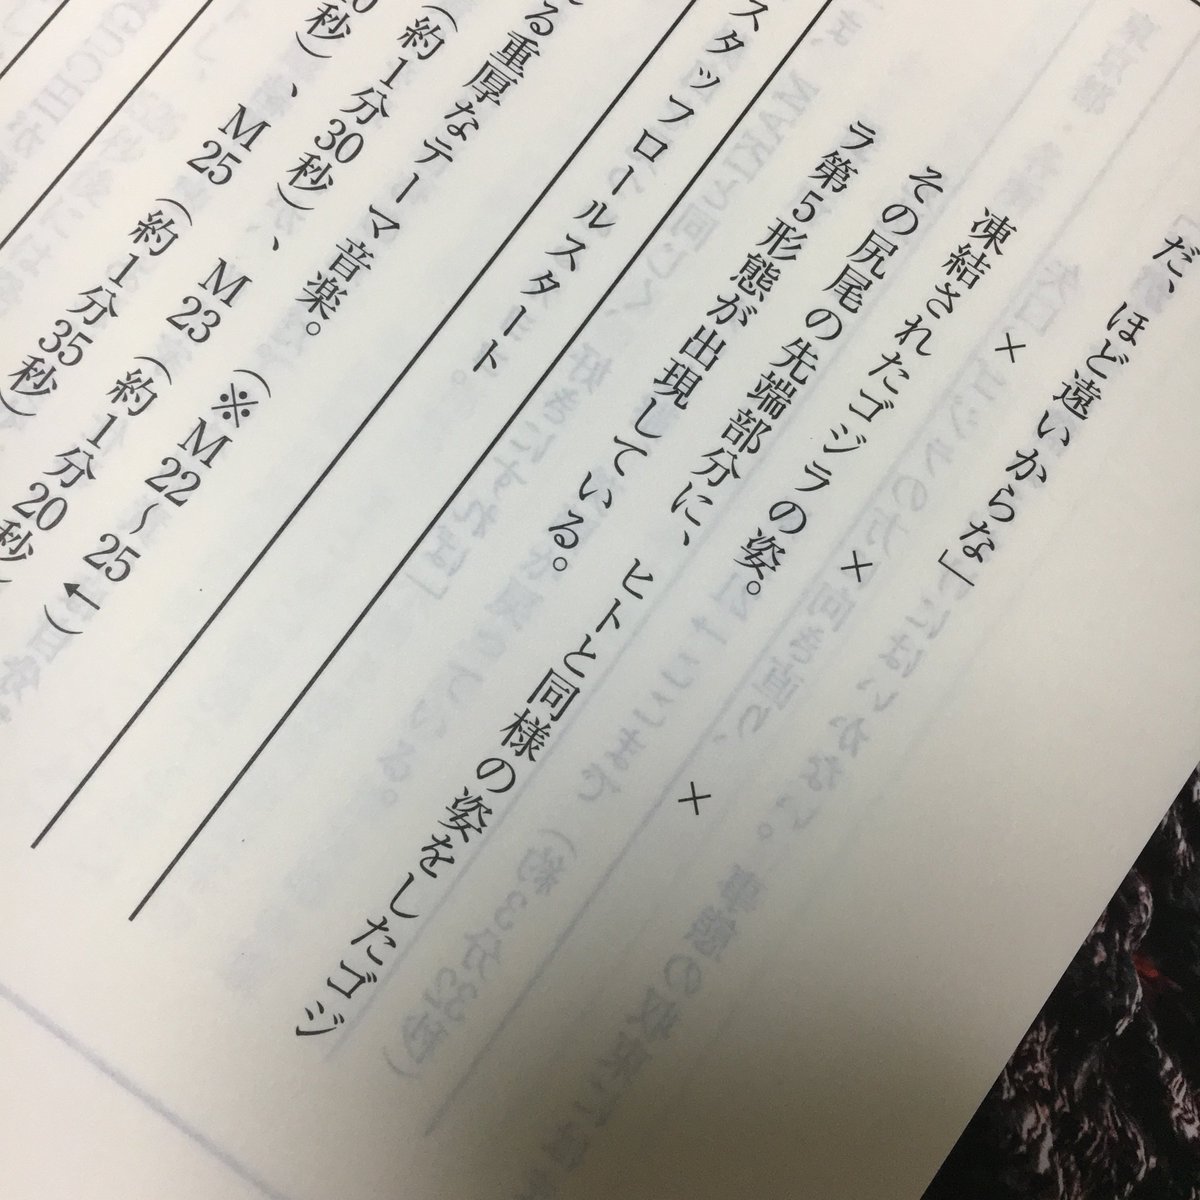 だ、ほど遠いからな」
× × ×
凍結されたゴジラの姿。
その尻尾の先端部分に、ヒトと同様の姿をしたゴジ
ラ第5形態が出現している。
スタッフロールスタート
る重厚なテーマ音楽。(※M22〜25←)
(約1分30秒)、M23(約1分20秒
0秒)、M25(約1分35秒)